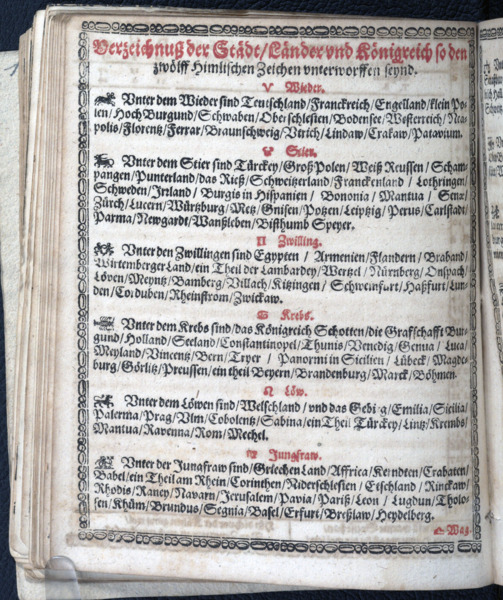 Verzeichnuß der Städt/Länder vnd Königreich so den
zwölff Himlischen Zeichen vnterworffen seynd.
♈ Wieder.
Vnter dem Wieder sind Teutschland/Franckreich/Engelland/klein Po-
len/Hoch Burgund/Schwaben/Oberschlesien/Bodensee/Westerreich/Nea-
polis/Florentz/Ferrar/Braunschweig/Vtrich/Lindaw/Crakaw/Patavium.
♉ Stier.
Vnter dem Stier sind Türckey/Groß Polen/Weiß Reussen/Scham-
pangen/Punterland/das Rieß/Schweitzerland/Franckenland/Lothringen/
Schweden/Irland/Burgis in Hispanien/Bononia/Mantua/Sena/
Zürch/Lucern/Würtzburg/Metz/Gnisen/Potzen/Leiptzig/Perus/Carlstadt/
Parma/Newgardt/Wantzleben/Bisthumb Speyer.
♊ Zwilling.
Vnter den Zwillingen sind Egypten/Armenien/Flandern/Braband/
Wirtemberger Land/ein Theil der Lambardey/Wertzel/Nürnberg/Onspach/
Löven/Meyntz/Bamberg/Villach/Kitzingen/Schweinfurt/Haßfurt/Lun-
den/Corduben/Rheinstrom/Zwickaw.
♋ Krebs.
Vnter dem Krebs sind/das Königreich Schotten/die Grafschafft Bur-
gund/Holland/Seeland/Constantinopel/Thunis/Venedig/Genua/Luca/
Meyland/Vincentz/Bern/Tryer/Panormi in Sicilien/Lübeck/Magde-
burg/Görlitz/Preussen/ein theil Beyern/Brandenburg/Marck/Böhmen.
♌ Löw.
Vnter dem Löwen sind/Welschland/vnd das Gebirg/Emilia/Sicilia/
Palerma/Prag/Vlm/Cobolentz/Sabina/ein Theil Türckey/Lintz/Krembs/
Mantua/Ravenna/Rom/Mechel.
♍ Jungfraw.
Vnter der Jungfraw sind/Griechen Land/Affrica/Kerndten/Crabaten/
Babel/ein Theil am Rhein/Corinthen/Niderschlesien/Etschland/Rinckaw/
Rhodis/Raney/Navarn/Jerusalem/Pavia/Pariß/Leon/Lugdun/Tholo-
sen/Khüm/Brundus/Segnia/Basel/Erfurt/Breßlaw/Heydelberg.
♎ Wag.